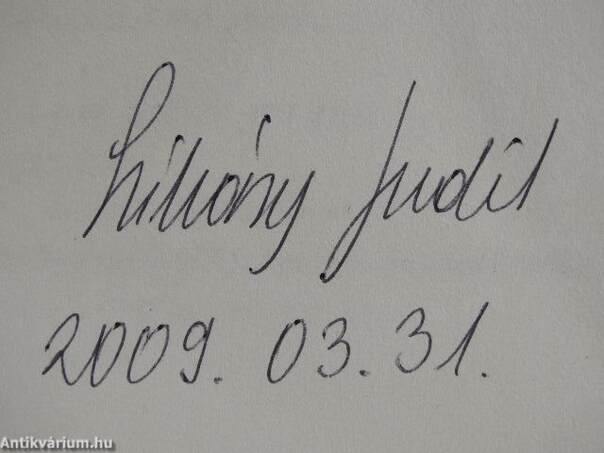 Judit
2009. 03. 31.
Antikvárium.hu